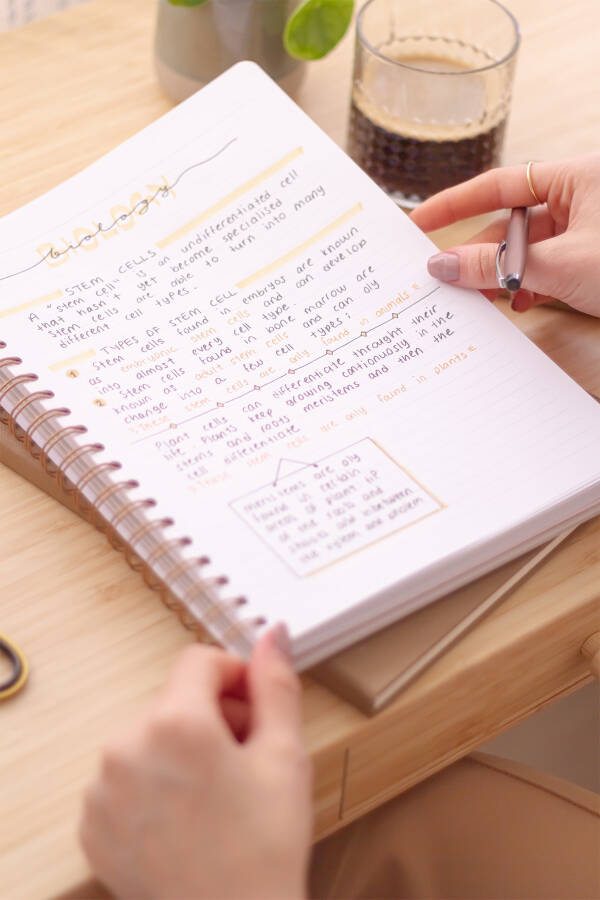 BIOLOGY
biology
STEM CELLS
A "stem cell" is an undifferentiated cell
that hasn't yet become specialised
stem cells are able to turn into many
different cell types.
TYPES OF STEM CELL
1 stem cells found in embryos are known
as embryonic stem cells and can develop
into almost every cell type.
2 stem cells found in bone marrow are
known as adult stem cells and can oly
change into a few cell types;
!! These stem cells are only found in animals
Plant cells can differentiate throught their
life. Plants keep growing continuously in the
stems and roots meristems and then the
cell differentiate
!! These stem cells are only found in plants
meristems are oly
found in certain
areas of plant
at the roots and
shoots and inbetween
the xylem and